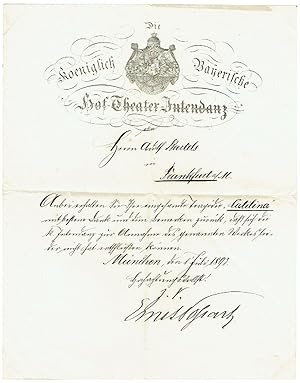 Die
Koeniglich Bayerische
Hof-Theater-Intendanz
Herrn Adolf
in
Frankfurt a/M.
Anbei erhalten Sie Ihre eingesandte Tragödie „Catilina"
mit bestem Dank und dem Bemerken zurück, daß sich die
k. Intendanz zur Annahme des genannten Werkes leider
nicht hat entschließen können.
München, den Juli 1893
Hochachtungsvollst
Ernst Possart